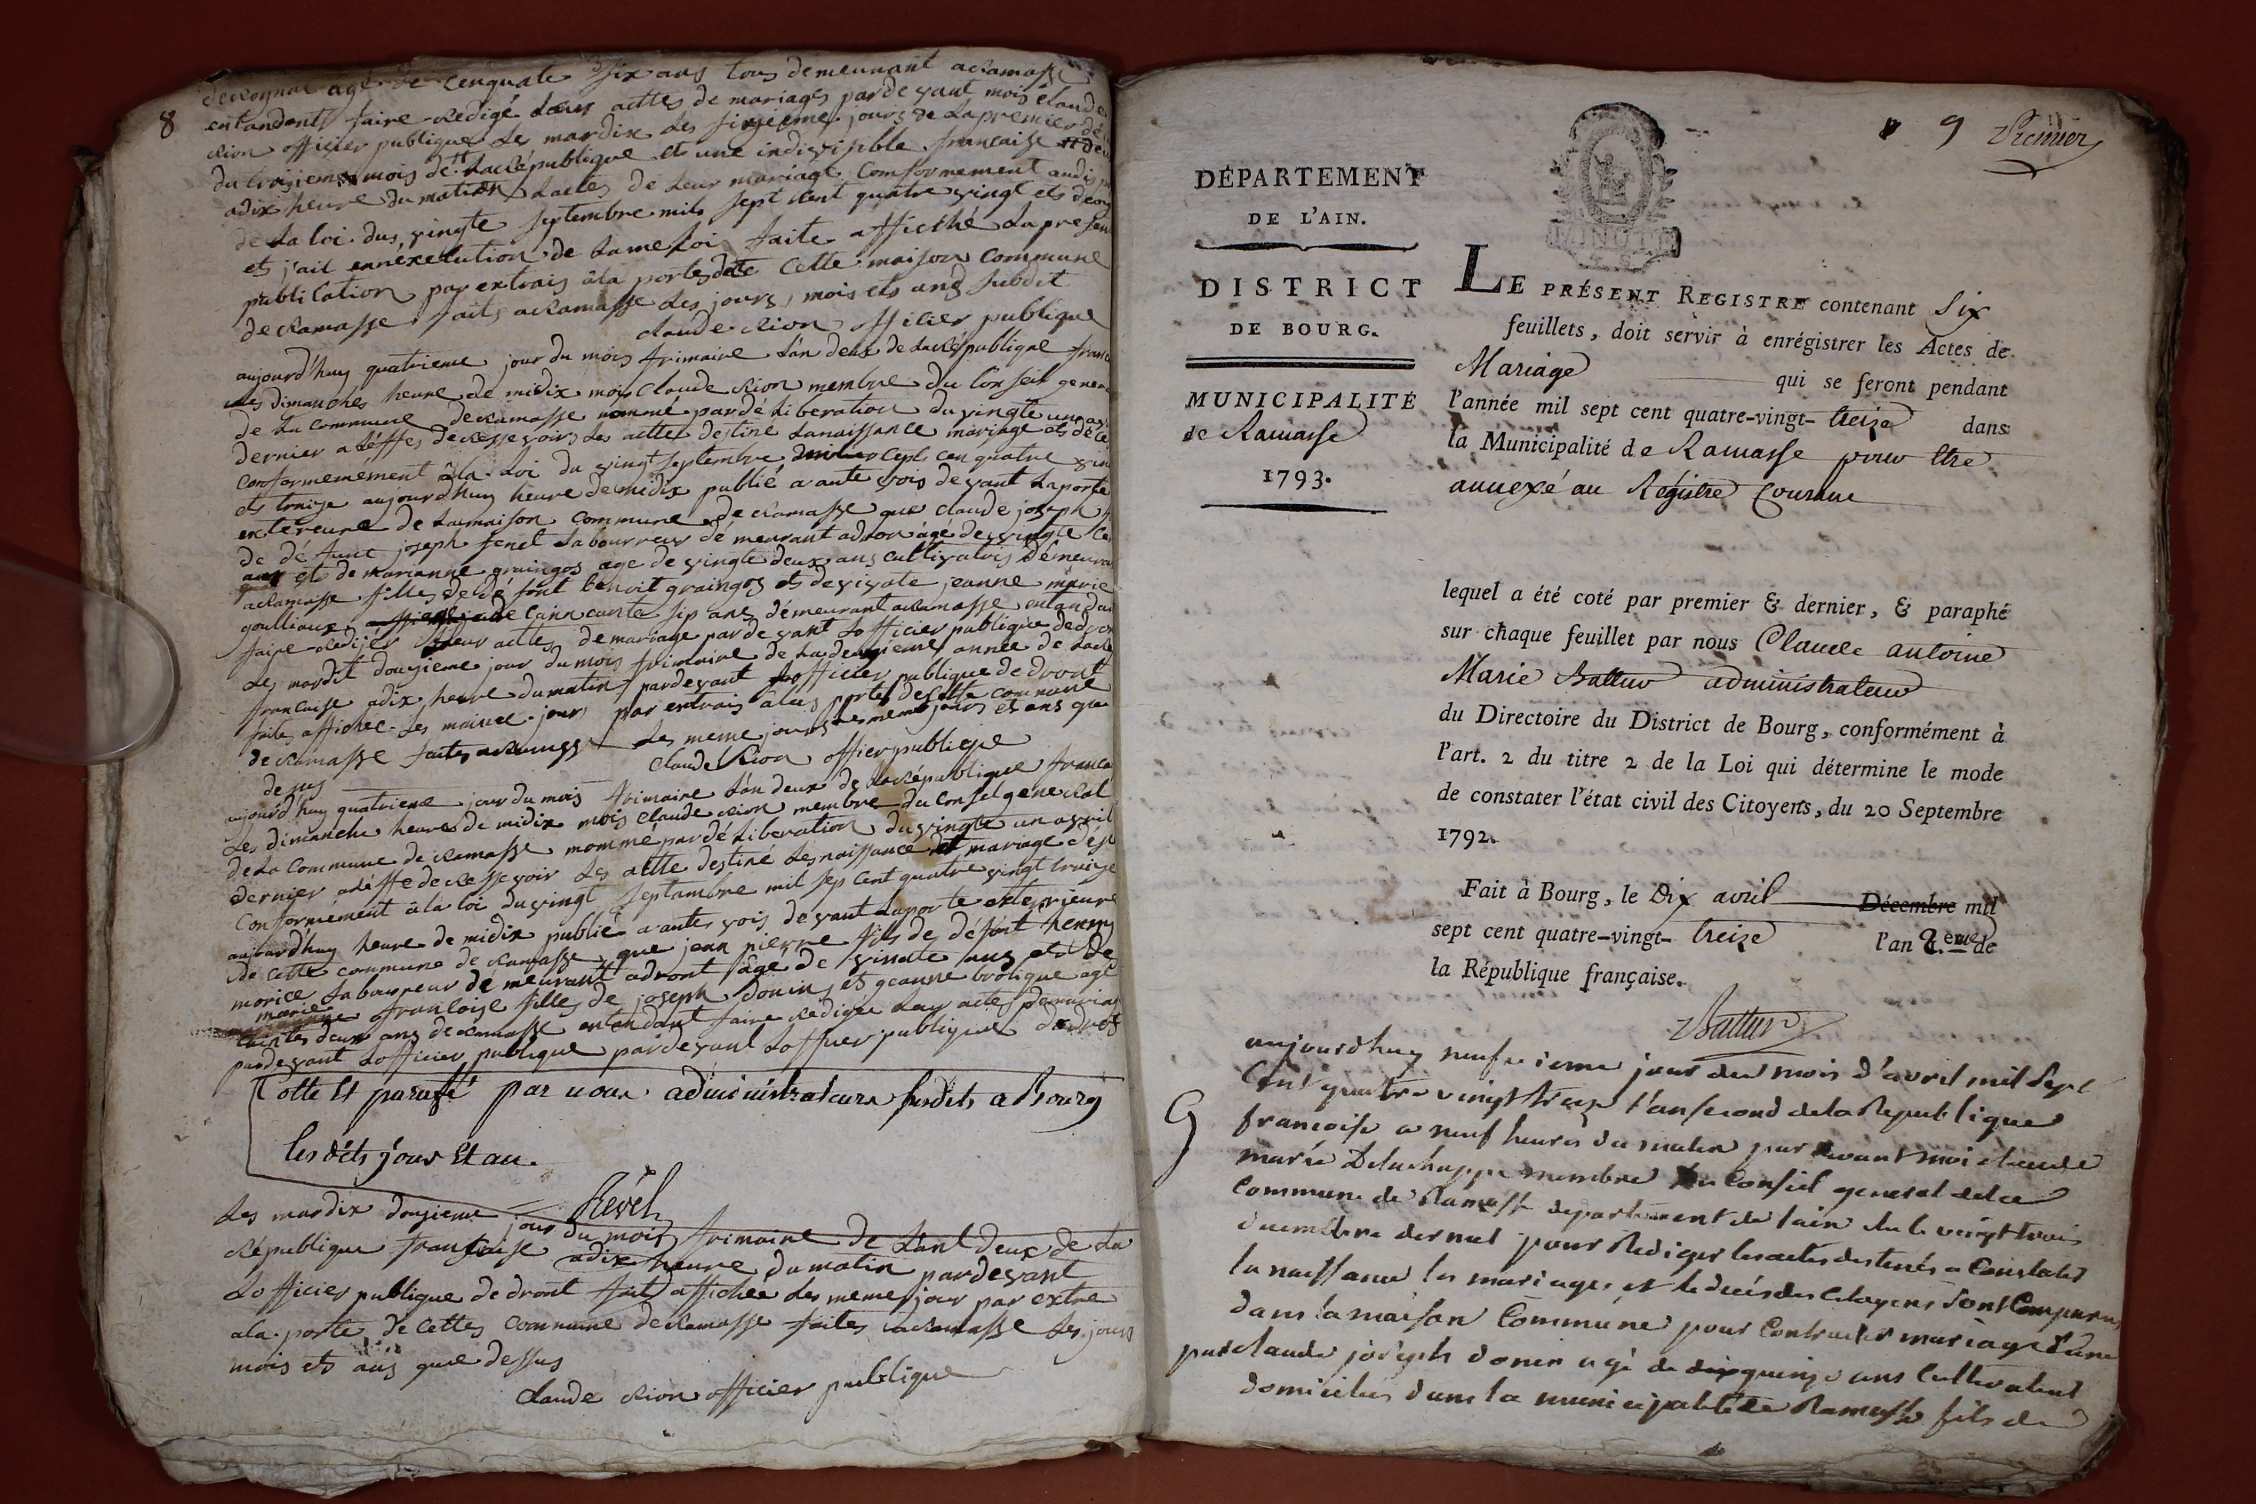 8
de Rognat agé de cenquate six ans tous demeurant a Ramasse
entandent faire Redigé leurs acttes de mariages pardevant mois Claude
Rion officier publique Les mardix Les sixieme jours de La premier dé
du troisieme mois de La République et une indivisible francaise
adix heure du matien Lactes de Leur mariage Conformement
de La loi dus vingte septembre mils sept cent quatre vingt ets deou
et j'ait ennexecution de La me Loi faite afficthé La presen
publication par extrais à la portes de Cette maison Commune
de Ramasse faits a Ramasse Les jours, mois ets ans susdit
Claude Rion officier publique
aujourd'huy quatrieme jour du mois frimaire L'an deux de La République franc
Les dimanches heure de midix mois Claude Rion membre du Conseil genera
de La Commune de Ramasse nommé par délibération du vingte un
dernier a L'éffes de Ressevoirs Les acttes destiné Lanaissance mariage ets décé
Conformemement à La Loi du vingt septembre cept cen quatre vin
ets traize aujourd'huy heure de midix publié a aute vois devant La porte
exterieure de Lamaison Commune de Ramasse que Claude joseph
de défunt joseph fenet Laboureur démeurant adron agé de vingte
ans ets de marianne graingos age de vingte deux ans Cultivatris démeurant
aRamasse filles de défont benoit graingos ets de vivate jeanne marie
goulliaux de Cainncante sip ans démeurant aRamasse entandant
faire Redijér Leur acttes de mariage pardevant L'officier publique de dron
Les mardit dougieme jour du mois frimaire de La deuxieme année de La
francaise adix heure du matin pardevant L'officier publique de dront
faite affichée Les maime jours par extrais à Las portes de Cette commune
de Ramasse faites a Ramasse Les meme jours Les meme jours ets ans que
desus
Claude Rion offier publique
aujourd'huy quatrieme jour du mois frimaire L'an deux de La République franca
Les dimanche heure de midix mois Claude Rion membre du Conseil general
de La Commune de Ramasse nommé par délibération du vingte un avril
dernier a L'éffe de Ressevoir Les actte destiné Les naissance mariage
Conformément à La loi du vingt septambre mil sep cent quatre vingt traize
aujourd'huy heure de midix publié a aute vois devant La porte exterieure
de Cette commune de Ramasse, que jean pierre fils de défont henry
morice Laboureur démeurant adront agé de vingte ans ets de
marie francoise filles de joseph donin, ets jeanne brolique agé
deux ans de Ramasse entendant faire Rédiger Leur acte de mariage
pardevant L'officier publique pardevant L'offier publique dedront
Cotté Et parafé par nous administrateur susdits a Bourg
les dits jour Et an.
Revel
Les mardix dougieme jour du mois frimaire de L'ant deux de La
République francaise adix heure du matin pardevant
L'officier publique de dront fait affichée Les meme jour par extre
a La porte de Cettes Commune de Ramasse faites a Ramasse Les jours
mois ets ans que dessus
Claude Rion officier publique
9 Premier
DÉPARTEMENT
DE L'AIN.
DISTRICT
DE BOURG.
MUNICIPALITÉ
de Ramasse
1793.
MINUTE
LE PRÉSENT REGISTRE contenant Six
feuillets, doit servir à enrégistrer les Actes de
Mariage qui se feront pendant
l'année mil sept cent quatre-vingt- treize dans
la Municipalité de Ramasse pour être
annexé au Régistre Courant
lequel a été coté par premier & dernier, & paraphé
sur chaque feuillet par nous Claude antoine
Marie Battur administrateur
du Directoire du District de Bourg, conformément à
l'art. 2 du titre 2 de la Loi qui détermine le mode
de constater l'état civil des Citoyens, du 20 Septembre
1792.
Fait à Bourg, le Dix avril Décembre mil
sept cent quatre-vingt- treize l'an 2.eme de
la République française.
Battur
9
aujourdhuy neufvieme jour du mois d'avril mil Sept
Cent quatre vingt treize l'an second de la Republique
francoise a neuf heures du matin par devant moi claude
marie Deluchappe membre du Conseil general de la
Commune de Ramasse departement de lain elu le vingt trois
decembre dernier pour Rediger les actes destinés a Constater
la naissance les mariages et le décés des Citoyens Sont Comparus
dans la maison Commune pour Contracter mariage d'une
part claude joseph donin agé de quinze ans Cultivateur
domicilié dans la municipalité de Ramasse fils de